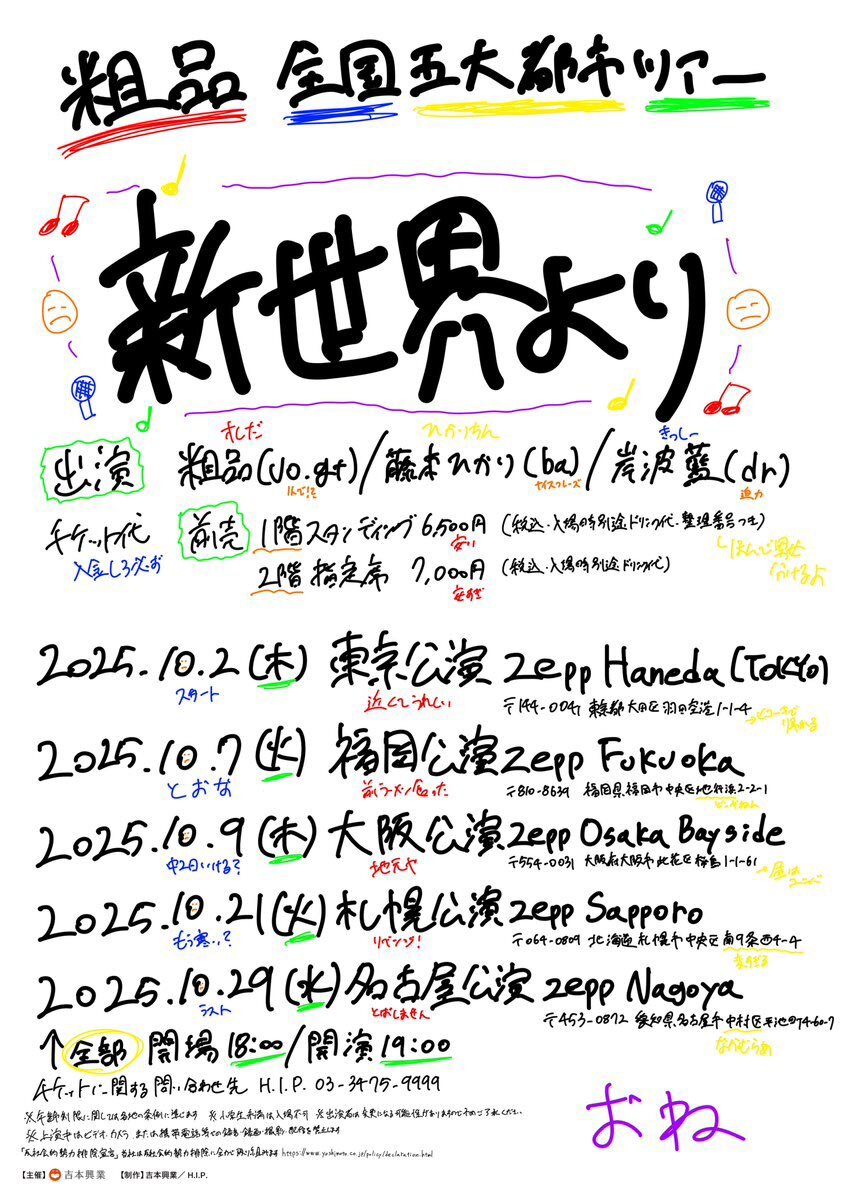 粗品 全国五大都市ツアー
新世界より
そしだ ひかりちん きっしー
出演 粗品(vo.gt)/藤本ひかり(ba)/岸波藍(dr)
ナイスフレーズ 迫力
チケット代 前売 1階スタンディング 6,500円 (税込・入場時別途ドリンク代・整理番号つき)
安い
2階指定席 7,000円 (税込・入場時別途ドリンク代)
安すぎ
2025.10.2(木) 東京公演 Zepp Haneda(TOKYO)
スタート 近くてうれしい 〒144-0041 東京都大田区羽田空港1-1-4
2025.10.7(火) 福岡公演 Zepp Fukuoka
とおな 前ラーメン食った 〒810-8639 福岡県福岡市中央区地行浜2-2-1
2025.10.9(木) 大阪公演 Zepp Osaka Bayside
中2日いける? 地元や 〒554-0031 大阪府大阪市此花区桜島1-1-61
2025.10.21(火) 札幌公演 Zepp Sapporo
もう寒い? リベンジ! 〒064-0809 北海道札幌市中央区南9条西4-4
2025.10.29(水) 名古屋公演 Zepp Nagoya
ラスト とばしません 〒453-0872 愛知県名古屋市中村区平池町4-60-7
なかむらぁ
↑全部 開場18:00/開演19:00
チケットに関する問い合わせ先 H.I.P. 03-3475-9999
※年齢制限に関しては各地の条例に準じます ※小学生未満は入場不可 ※出演者は変更になる可能性がありますので予めご了承ください
※上演中はビデオ・カメラ または携帯電話等での録音・録画・撮影・配信を禁止します
「反社会的勢力排除宣言」当社は反社会的勢力排除に全力で取り組みます https://www.yoshimoto.co.jp/policy/declaration.html
おね
【主催】吉本興業 【制作】吉本興業/H.I.P.